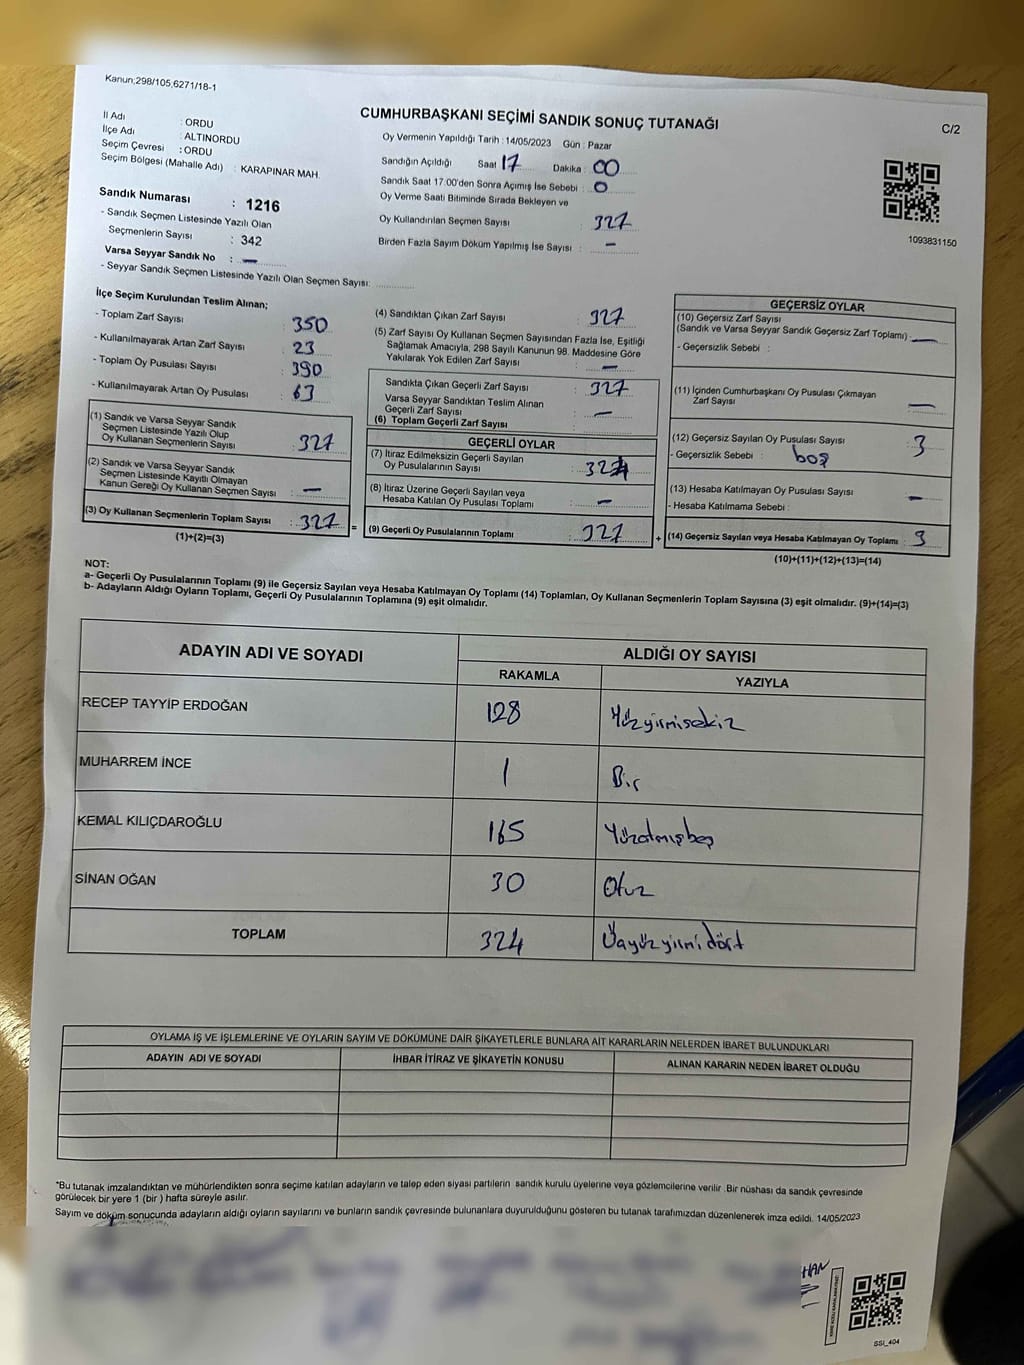 Kanun;298/105,6271/18-1
CUMHURBAŞKANI SEÇİMİ SANDIK SONUÇ TUTANAĞI
C/2
İl Adı : ORDU
İlçe Adı : ALTINORDU
Seçim Çevresi : ORDU
Seçim Bölgesi (Mahalle Adı) : KARAPINAR MAH.
Sandık Numarası : 1216
- Sandık Seçmen Listesinde Yazılı Olan
Seçmenlerin Sayısı : 342
Varsa Seyyar Sandık No : —
- Seyyar Sandık Seçmen Listesinde Yazılı Olan Seçmen Sayısı:
Oy Vermenin Yapıldığı Tarih : 14/05/2023 Gün : Pazar
Sandığın Açıldığı Saat 17 Dakika : 00
Sandık Saat 17:00'den Sonra Açımış İse Sebebi : 0
Oy Verme Saati Bitiminde Sırada Bekleyen ve
Oy Kullandırılan Seçmen Sayısı 327
Birden Fazla Sayım Döküm Yapılmış İse Sayısı : —
1093831150
İlçe Seçim Kurulundan Teslim Alınan;
- Toplam Zarf Sayısı : 350
- Kullanılmayarak Artan Zarf Sayısı : 23
- Toplam Oy Pusulası Sayısı : 390
- Kullanılmayarak Artan Oy Pusulası : 63
(1) Sandık ve Varsa Seyyar Sandık
Seçmen Listesinde Yazılı Olup
Oy Kullanan Seçmenlerin Sayısı : 327
(2) Sandık ve Varsa Seyyar Sandık
Seçmen Listesinde Kayıtlı Olmayan
Kanun Gereği Oy Kullanan Seçmen Sayısı : —
(3) Oy Kullanan Seçmenlerin Toplam Sayısı : 327 =
(1)+(2)=(3)
(4) Sandıktan Çıkan Zarf Sayısı : 327
(5) Zarf Sayısı Oy Kullanan Seçmen Sayısından Fazla İse, Eşitliği
Sağlamak Amacıyla, 298 Sayılı Kanunun 98. Maddesine Göre
Yakılarak Yok Edilen Zarf Sayısı : —
Sandıkta Çıkan Geçerli Zarf Sayısı : 327
Varsa Seyyar Sandıktan Teslim Alınan
Geçerli Zarf Sayısı : —
(6) Toplam Geçerli Zarf Sayısı :
GEÇERLİ OYLAR
(7) İtiraz Edilmeksizin Geçerli Sayılan
Oy Pusulalarının Sayısı : 324
(8) İtiraz Üzerine Geçerli Sayılan veya
Hesaba Katılan Oy Pusulası Toplamı : —
(9) Geçerli Oy Pusulalarının Toplamı : 327 +
GEÇERSİZ OYLAR
(10) Geçersiz Zarf Sayısı
(Sandık ve Varsa Seyyar Sandık Geçersiz Zarf Toplamı) : —
- Geçersizlik Sebebi :
(11) İçinden Cumhurbaşkanı Oy Pusulası Çıkmayan
Zarf Sayısı : —
(12) Geçersiz Sayılan Oy Pusulası Sayısı : 3
- Geçersizlik Sebebi : boş
(13) Hesaba Katılmayan Oy Pusulası Sayısı : —
- Hesaba Katılmama Sebebi :
(14) Geçersiz Sayılan veya Hesaba Katılmayan Oy Toplamı : 3
(10)+(11)+(12)+(13)=(14)
NOT:
a- Geçerli Oy Pusulalarının Toplamı (9) ile Geçersiz Sayılan veya Hesaba Katılmayan Oy Toplamı (14) Toplamları, Oy Kullanan Seçmenlerin Toplam Sayısına (3) eşit olmalıdır. (9)+(14)=(3)
b- Adayların Aldığı Oyların Toplamı, Geçerli Oy Pusulalarının Toplamına (9) eşit olmalıdır.
ADAYIN ADI VE SOYADI ALDIĞI OY SAYISI
RAKAMLA YAZIYLA
RECEP TAYYİP ERDOĞAN 128 Yüzyirmisekiz
MUHARREM İNCE 1 Bir
KEMAL KILIÇDAROĞLU 165 Yüzatmışbeş
SİNAN OĞAN 30 Otuz
TOPLAM 324 Üçyüzyirmidört
OYLAMA İŞ VE İŞLEMLERİNE VE OYLARIN SAYIM VE DÖKÜMÜNE DAİR ŞİKAYETLERLE BUNLARA AİT KARARLARIN NELERDEN İBARET BULUNDUKLARI
ADAYIN ADI VE SOYADI İHBAR İTİRAZ VE ŞİKAYETİN KONUSU ALINAN KARARIN NEDEN İBARET OLDUĞU
*Bu tutanak imzalandıktan ve mühürlendikten sonra seçime katılan adayların ve talep eden siyasi partilerin sandık kurulu üyelerine veya gözlemcilerine verilir .Bir nüshası da sandık çevresinde
görülecek bir yere 1 (bir ) hafta süreyle asılır.
Sayım ve döküm sonucunda adayların aldığı oyların sayılarını ve bunların sandık çevresinde bulunanlara duyurulduğunu gösteren bu tutanak tarafımızdan düzenlenerek imza edildi. 14/05/2023
HAN
SSI_404